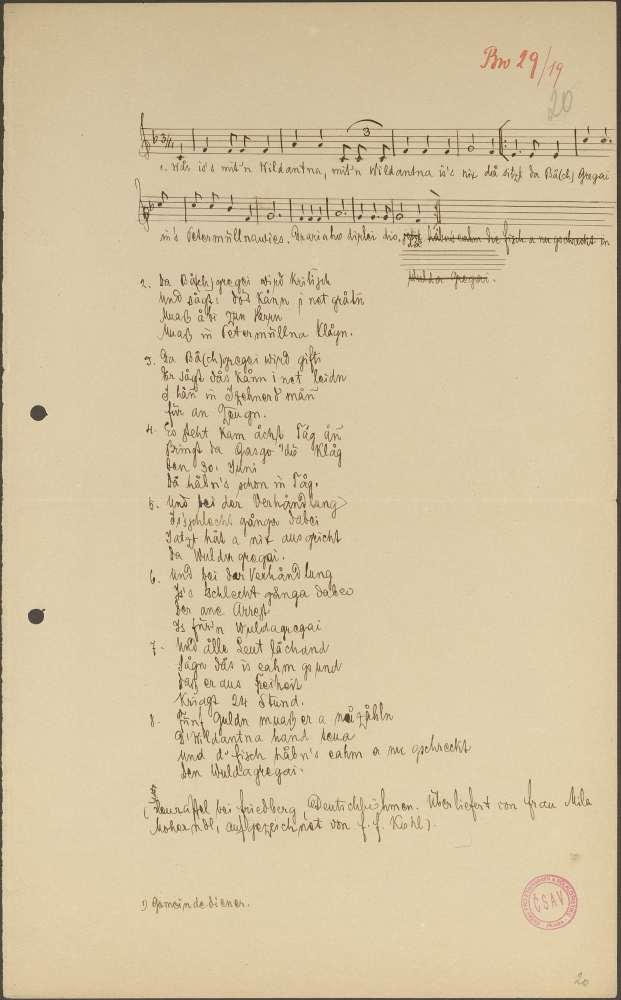 Bw 29/19
20
3/4
3
1. Wås is's mit'n Wildantna, mit'n Wildantna is's nix då sitzt da Bå(ch) Gregai
in's Petermüllnawies. Drariaho diridi dio, håbn's eahm die Fisch a nu gschreckt
Wulda Gregai.
2. Da Bå(ch)gregai wird kritisch
Und sågt: dös kånn i not gråtn
Muaß åbi zun Herrn
Muaß in Petermüllna klågn.
3. Da Bå(ch)gregai wird gifti
Er sågt dås kånn i not leidn
I hån in
für an Zeugn.
4. Es steht kam åcht Tåg ån
Bringt da Gasgo 1) dö Klåg
Den 30. Juni
Då håbn's schon in Tåg.
5. Und bei der Verhåndlung
Is's schlecht gånga dabei
Iatzt håt a nix ausgricht
Da Wuldagregai.
6. Und bei der Verhåndlung
Is's schlecht gånga dabei
Der ane Arrest
Is für'n Wuldagregai
7. Und ålle Leut låchand
Sågn dås is eahm gsund
Daß er aus Freiheit
Kriagt 24 Stund.
8. Fünf Guldn muaß er a no zåhln
D'Wildantna hand
Und d'Fisch håbn's eahm a nu gschreckt
Den Wuldagregai.
( bei Friedberg, Deutschböhmen. Überliefert von Frau Mila
aufgezeichnet von F. F. Kohl).
1) Gemeindediener.
ČSAV
20